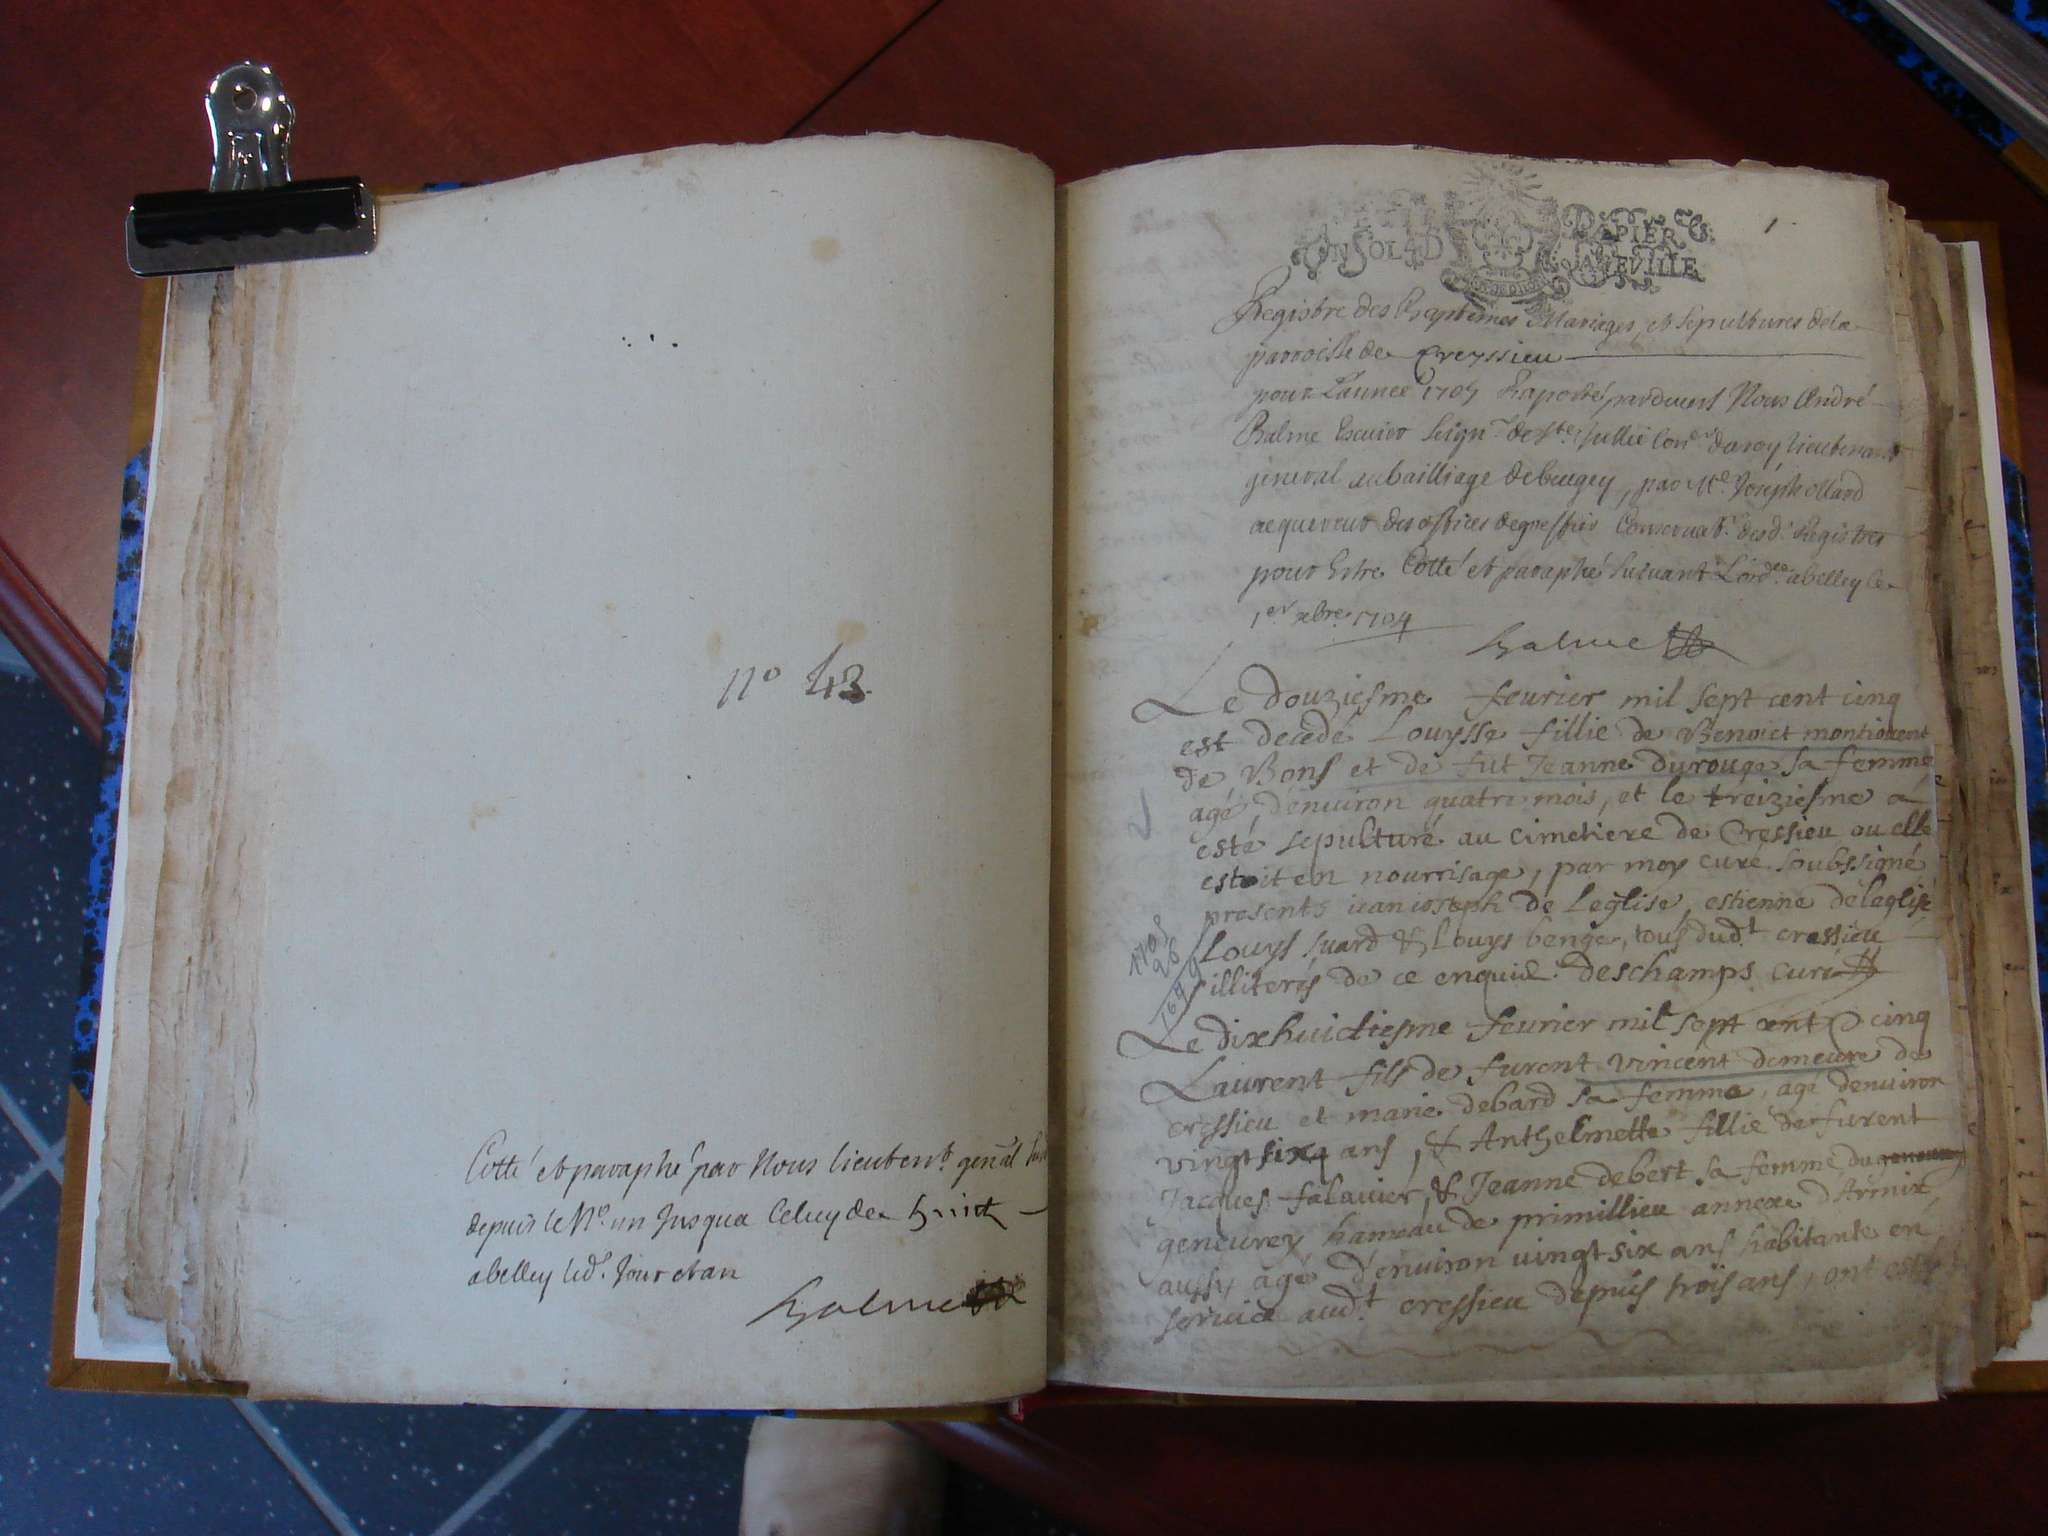 nº 43.
Cotté et paraphé par Nous lieutent. gen̄al
depuis le Nº. un Jusqua Celuy de huict
abelley led. Jour et an
Balme
1.
UN SOL 4 D PAPIER
LA FEVILLE
Registre des Baptemes Mariages, et sepultures de la
parroisse de Creyssieu
pour L'annee 1705 Raporté pardevers Nous André
Balme Escuier Seignr. de Ste. Jullie Coner. du roy lieutenant
general au bailliage de beugey, par Me. Joseph ollard
acquereur des offices de greffier Conservatr. desd. Registres
pour Estre Cotté et paraphé suivant Lordce. abelley le
1er xbre. 1704
Balme
Le douziesme feurier mil sept cent cinq
est decedé Louysse fillie de Benoict montiouent
de Bons et de fut Jeanne durouge sa femme
agé d'enuiron quatre mois, et le treiziesme a
esté sepulturé au cimetiere de Cressieu ou elle
estoit en nourrisage, par moy curé soubssigné
presents iean ioseph de Leglise, estienne deleglise
Louys suard & Louys benge, tous dud.t cressieu
illiterés de ce enquis. deschamps curé
1705
26
1679
Le dixhuictiesme feurier mil sept cent cinq
Laurent fils de furent vincent demeure de
cressieu et marie debard sa femme, agé denuiron
vingt six ans, & Anthelmette fillie de furent
Jacques falauier, & Jeanne debert sa femme du
geneurey hameau de primillieu annexe d'Armix
aussy agé d'enuiron uingt six ans habitante en
seruice aud.t cressieu depuis trois ans, ont esté